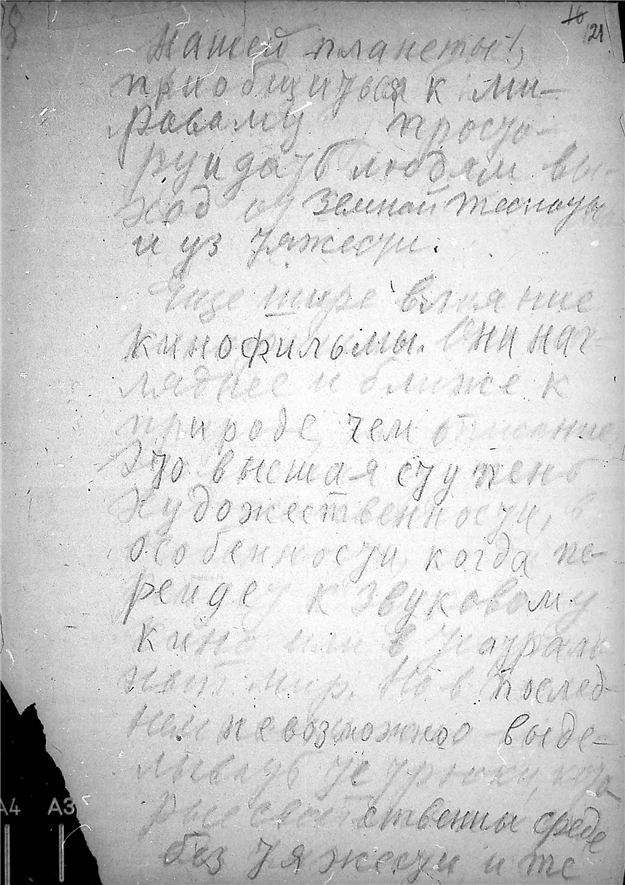 16
21
нашей планеты!),
приобщиться к ми-
ровому просто-
ру и дать людям вы-
ход от земной тесноты
и уз тяжести.
Еще шире влияние
кинофильмы. Они наг-
ляднее и ближе к
природе, чем описание
Это высшая ступень
художественности, в
особенности, когда пе-
рейдет к звуковому
кино или в театраль
ный мир. Но в послед-
нем невозможно выде-
лывать те трюки, кото-
рые свойственны среде
без тяжести и те
A4 A3